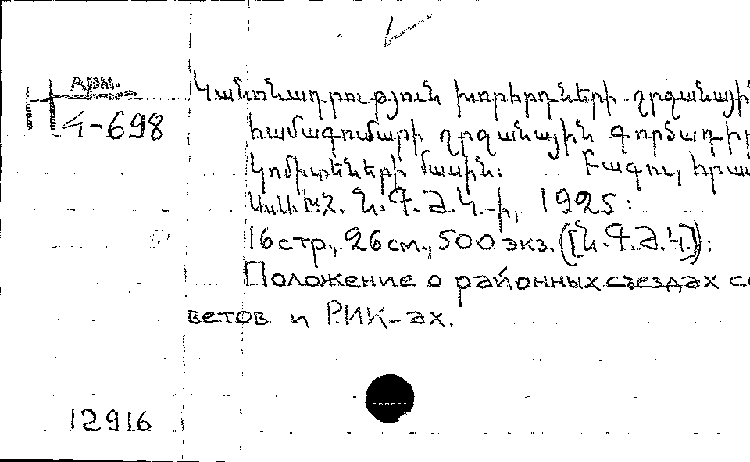 арм.
Կանոնադրություն խորհրդների շրջանային
Կ-698
համագումարի շրջանային գործադիր
կոմիտեների մասին: Բագու, հրատ
1925:
16 стр., 26 см., 500 экз.
Положение о районных съездах со
ветов и РИК-ах.
12916